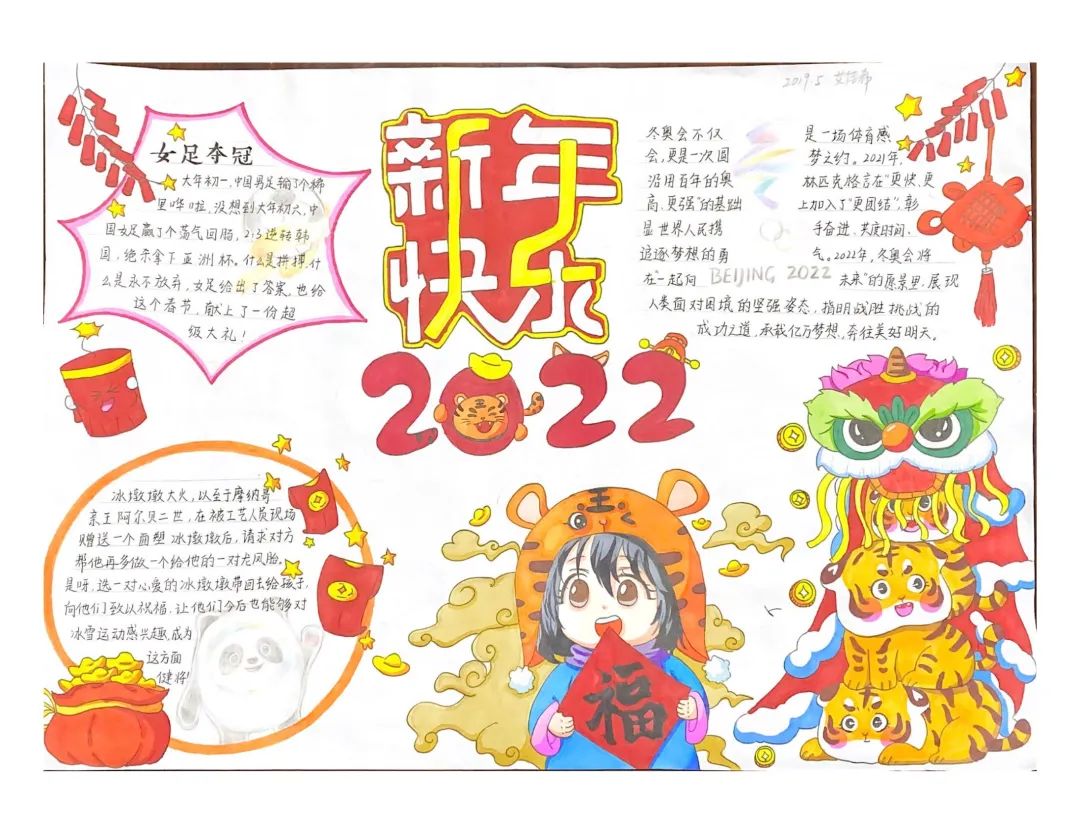 2019.5
女足夺冠
大年初一,中国男足输了个稀
里哗啦,没想到大年初六,中
国女足赢了个荡气回肠,2:3逆转韩
国,绝杀拿下亚洲杯。什么是拼搏,什
么是永不放弃,女足给出了答案。也给
这个春节,献上了一份超
级大礼!
新年
快乐
2022
冬奥会不仅 是一场体育感
会,更是一次圆 梦之约。2021年,
沿用百年的奥 林匹克格言在“更快、更
高、更强”的基础 上加入了“更团结”,彰
显世界人民携 手奋进、共度时间、
追逐梦想的勇 气。2022年,冬奥会将
在“一起向 BEIJING 2022 未来”的愿景里,展现
人类面对困境的坚强姿态,指明战胜挑战的
成功之道,承载亿万梦想,奔往美好明天。
冰墩墩大火,以至于摩纳哥
亲王阿尔贝二世,在被工艺人员现场
赠送一个面塑冰墩墩后,请求对方
帮他再多做一个给他的一对龙凤胎。
是呀,选一对心爱的冰墩墩带回去给孩子,
向他们致以祝福,让他们今后也能够对
冰雪运动感兴趣,成为
这方面
健将!
王
福